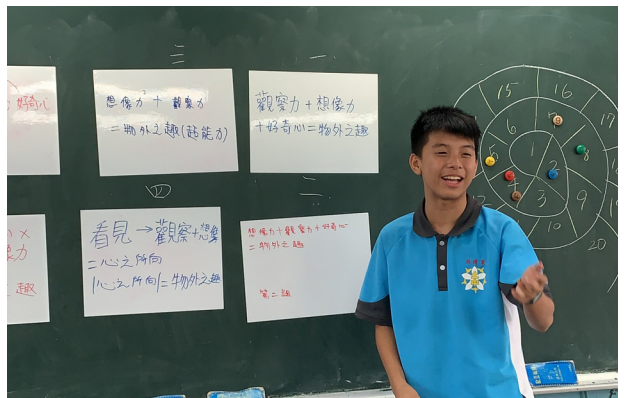 三
一
好奇心
想像力² + 觀察力
=物外之趣(超能力)
觀察力+想像力
+好奇心=物外之趣
四
二
x
力
趣
看見→觀察+想像
=心之所向
|心之所向|=物外之趣
想像力+觀察力+好奇心
=物外之趣
第二組
15
16
17
6
7
8
5
1
2
4
3
9
10
20